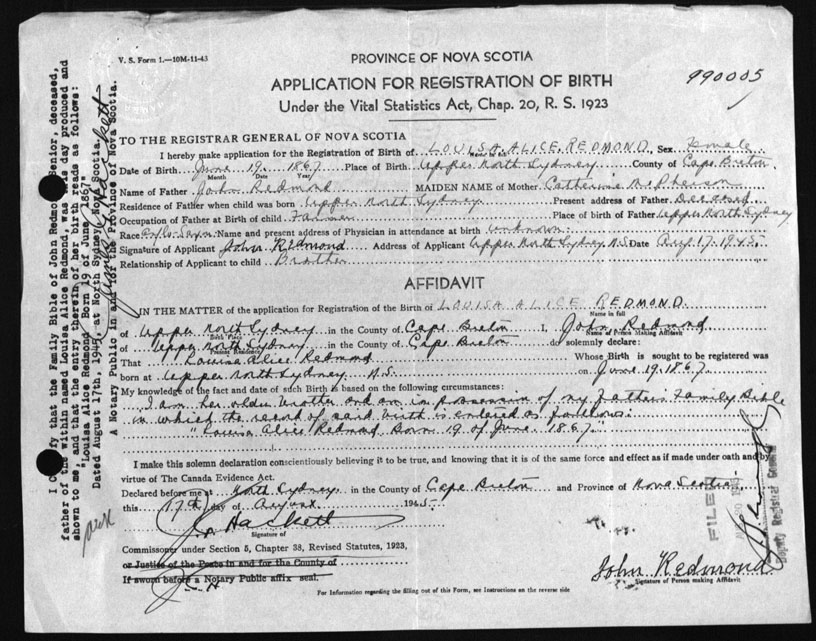 V. S. Form 1.—10M-11-43
PROVINCE OF NOVA SCOTIA
APPLICATION FOR REGISTRATION OF BIRTH
Under the Vital Statistics Act, Chap. 20, R. S. 1923
990005
TO THE REGISTRAR GENERAL OF NOVA SCOTIA
I hereby make application for the Registration of Birth of LOUISA ALICE REDMOND Sex Female
Name in full
Date of Birth June 19 1867 Place of Birth Upper North Sydney County of Cape Breton
Month Date Year
Name of Father John Redmond MAIDEN NAME of Mother Catherine McPherson
Residence of Father when child was born Upper North Sydney Present address of Father Deceased
Occupation of Father at Birth of child Farmer Place of birth of Father Upper North Sydney
Race Anglo-Saxon Name and present address of Physician in attendance at birth unknown
Signature of Applicant John Redmond Address of Applicant Upper North Sydney N.S. Date Aug. 17. 1945
Relationship of Applicant to child Brother
AFFIDAVIT
IN THE MATTER of the application for Registration of the Birth of LOUISA ALICE REDMOND
Name in full
of Upper North Sydney in the County of Cape Breton I, John Redmond
Birth Place Name of Person Making Affidavit
of Upper North Sydney in the County of Cape Breton do solemnly declare:
Present Residence
That Louisa Alice Redmond Whose Birth is sought to be registered was
born at Upper North Sydney N.S. on June 19. 1867.
My knowledge of the fact and date of such Birth is based on the following circumstances:
I am her older brother and am in possession of my Father's Family Bible
in which the record of said birth is entered as follows:
"Louisa Alice Redmond Born 19 of June 1867."
I make this solemn declaration conscientiously believing it to be true, and knowing that it is of the same force and effect as if made under oath and by
virtue of The Canada Evidence Act.
Declared before me at North Sydney in the County of Cape Breton and Province of Nova Scotia
this 17th day of August 1945
Hackett
Signature of
Commissioner under Section 5, Chapter 38, Revised Statutes, 1923,
or Justice of the Peace in and for the County of
If sworn before a Notary Public affix seal.
John Redmond
Signature of Person making Affidavit
For Information regarding the filling out of this Form, see Instructions on the reverse side
I Certify that the Family Bible of John Redmond Senior, deceased,
father of the within named Louisa Alice Redmond, was this day produced and
shown to me, and that the entry therein of her birth reads as follows:
"Louisa Alice Redmond Born 19 of June 1867"
Dated August 17th, 1945 at North Sydney, Nova Scotia.
Hackett
A Notary Public in and for the Province of Nova Scotia.
FILED
Deputy Registrar General